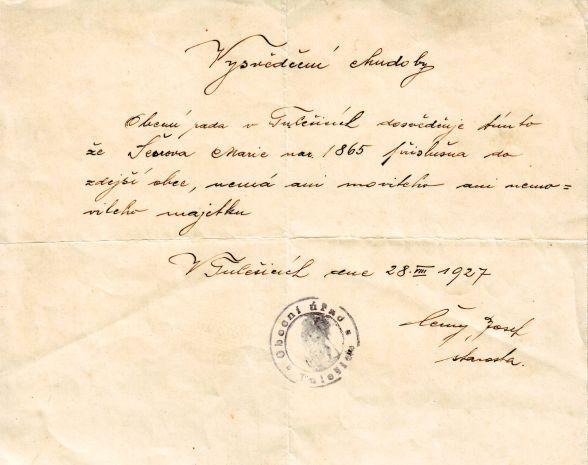 Vysvědčení chudoby
Obecní rada v Tulešicích dosvědčuje tímto
že Marie nar. 1865 příslušna do
zdejší obce, nemá ani movitého ani nemo=
vitého majetku
V Tulešicích dne 28.VIII 1927
Černý Josef
starosta.
Obecní úřad